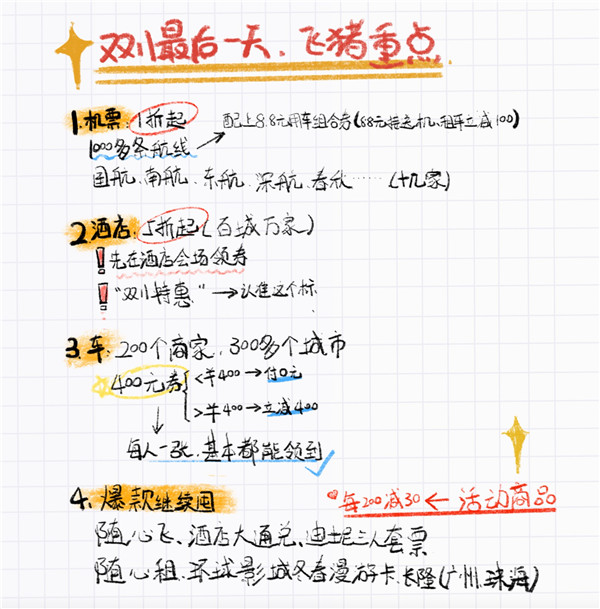 双11最后一天、飞猪重点
1.机票:1折起 配上8.8元用车组合券(88元接送机、租车立减100)
1000多条航线
国航、南航、东航、深航、春秋……(十几家)
2酒店:5折起(百城万家)
!先在酒店会场领券
!"双11特惠"→认准这个标
3.车:200个商家,300多个城市
400元券 <¥400→付0元
>¥400→立减400
每人一张,基本都能领到
4.爆款继续囤 每200减30←活动商品
随心飞、酒店大通兑、迪士尼三人套票
随心租、环球影城冬春漫游卡、长隆(广州、珠海)